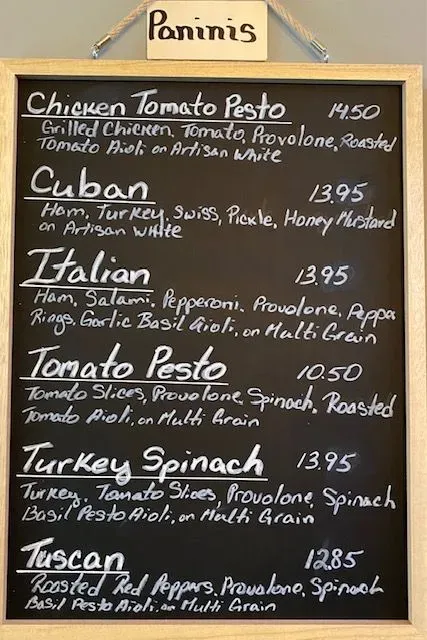 Paninis
Chicken Tomato Pesto 14.50
Grilled Chicken, Tomato, Provolone, Roasted
Tomato Aioli on Artisan White
Cuban 13.95
Ham, Turkey, Swiss, Pickle, Honey Mustard
on Artisan White
Italian 13.95
Ham, Salami, Pepperoni, Provolone, Peppa
Rings, Garlic Basil Aioli, on Multi Grain
Tomato Pesto 10.50
Tomato Slices, Provolone, Spinach, Roasted
Tomato Aioli, on Multi Grain
Turkey Spinach 13.95
Turkey, Tomato Slices, Provolone, Spinach
Basil Pesto Aioli, on Multi Grain
Tuscan 12.85
Roasted Red Peppers, Provolone, Spinach
Basil Pesto Aioli, on Multi Grain